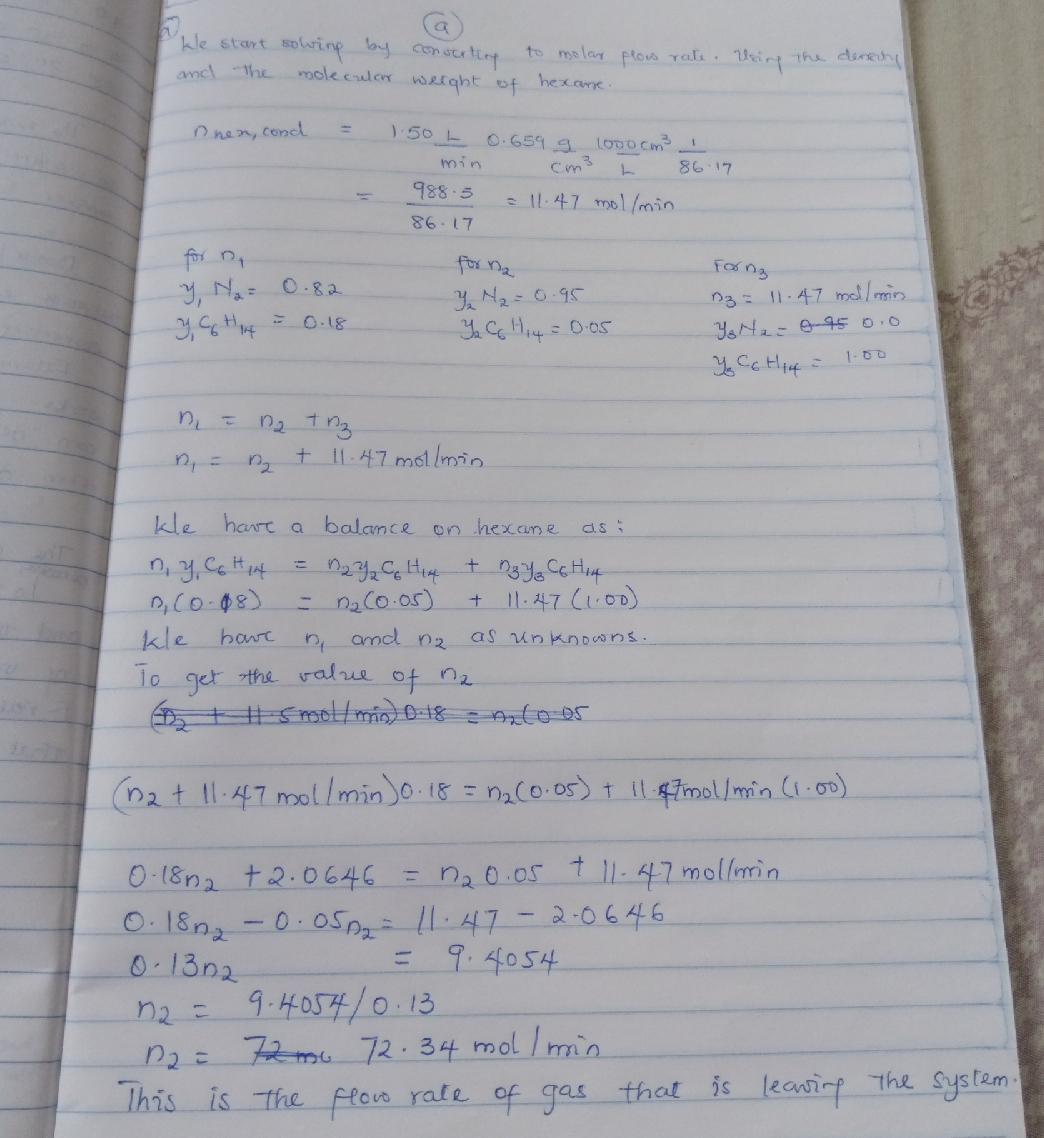 a
We start solving by converting to molar flow rate. Using the density
and the molecular weight of hexane.
nhex, cond = 1.50 L/min 0.659 g/cm³ 1000cm³/L 1/86.17
= 988.5/86.17 = 11.47 mol/min
for n₁ for n₂ For n₃
y₁ N₂ = 0.82 y₂ N₂ = 0.95 n₃ = 11.47 mol/min
y₁ C₆H₁₄ = 0.18 y₂ C₆H₁₄ = 0.05 y₃ N₂ = 0.95 0.0
y₃ C₆H₁₄ = 1.00
n₁ = n₂ + n₃
n₁ = n₂ + 11.47 mol/min
We have a balance on hexane as:
n₁ y₁ C₆H₁₄ = n₂y₂C₆H₁₄ + n₃y₃C₆H₁₄
n₁(0.18) = n₂(0.05) + 11.47 (1.00)
We have n₁ and n₂ as unknowns.
To get the value of n₂
(n₂ + 11.5 mol/min) 0.18 = n₂(0.05
(n₂ + 11.47 mol/min)0.18 = n₂(0.05) + 11.47mol/min (1.00)
0.18n₂ + 2.0646 = n₂ 0.05 + 11.47 mol/min
0.18n₂ - 0.05n₂ = 11.47 - 2.0646
0.13n₂ = 9.4054
n₂ = 9.4054/0.13
n₂ = 72 mo 72.34 mol/min
This is the flow rate of gas that is leaving the system.